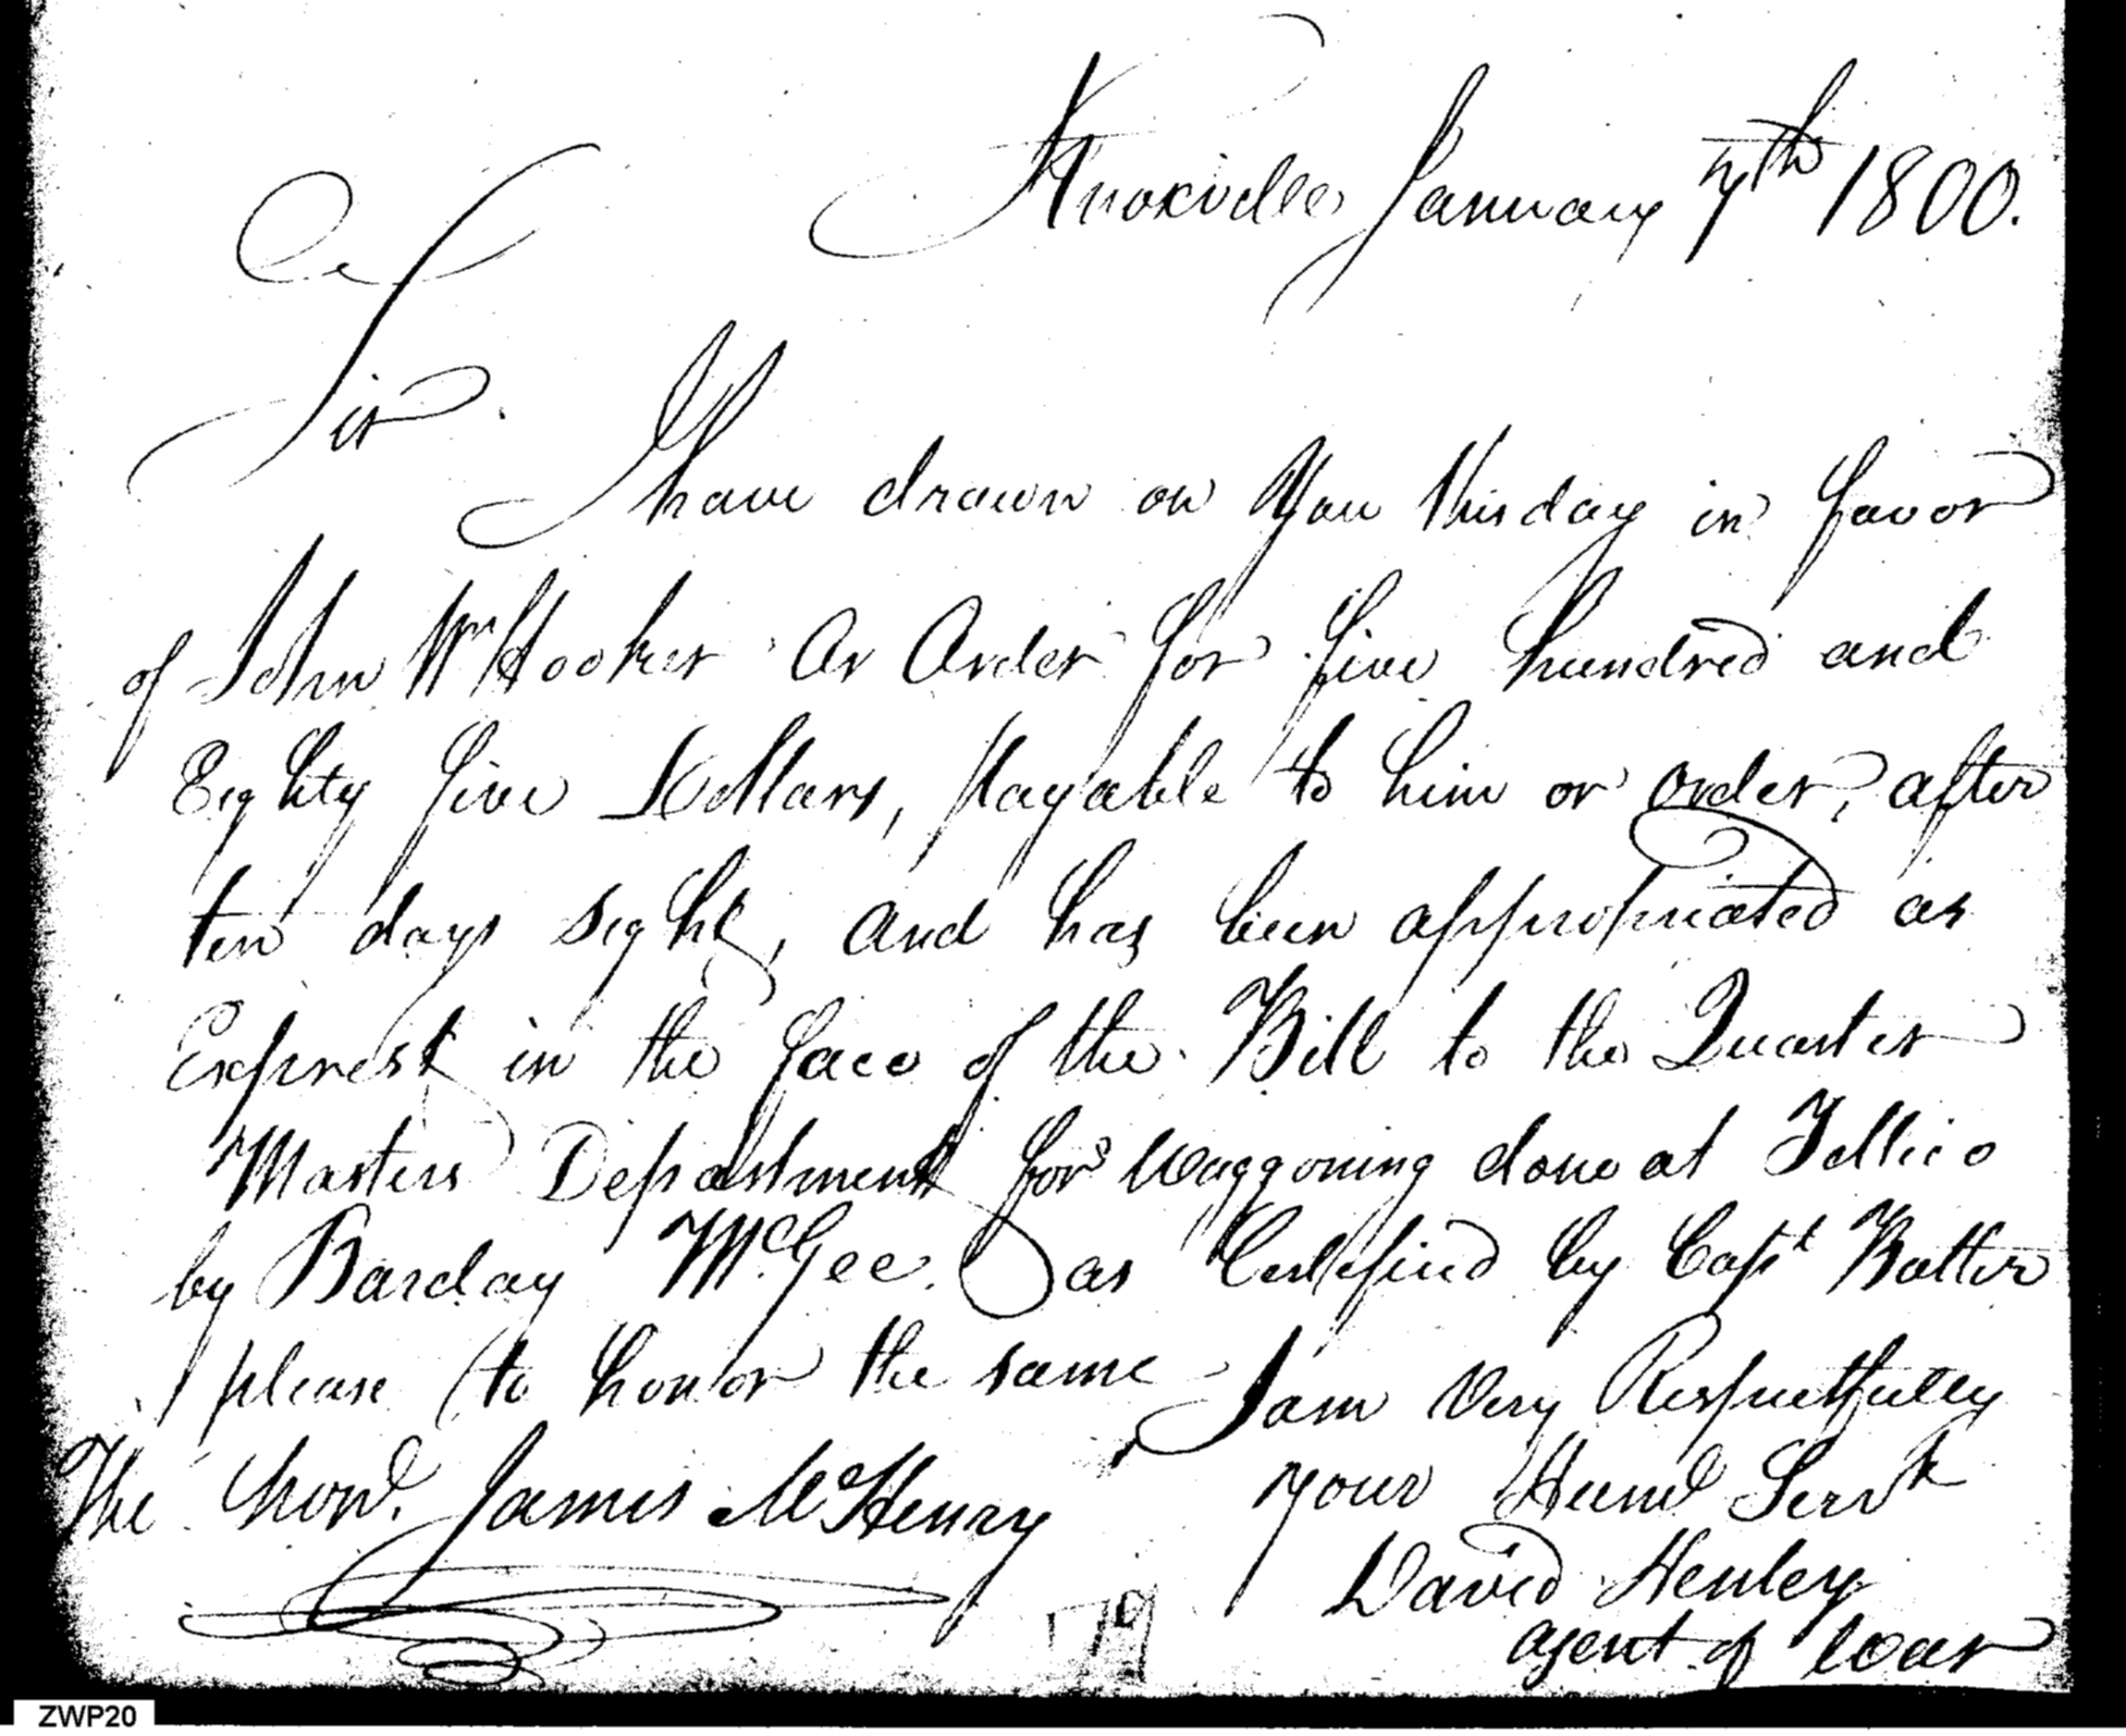 Knoxville January 7th 1800.
Sir.
I have drawn on You this day in favor
of John Wm Hooker An Order for five hundred and
Eighty five Dollars, payable to him or order, after
ten days sight, And has been appropriated as
Exprest in the face of the Bill to the Quarter
Masters Department for Waggoning done at Tellico
by Barclay McGee. as Certefied by Capt Butler
please to honor the same - I am Very Respectfully
your Humd Servt
The Hond. James McHenry
David Henley
agent of War
ZWP20